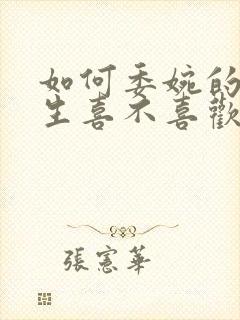 如何委婉的
生喜不喜歡
張憲華